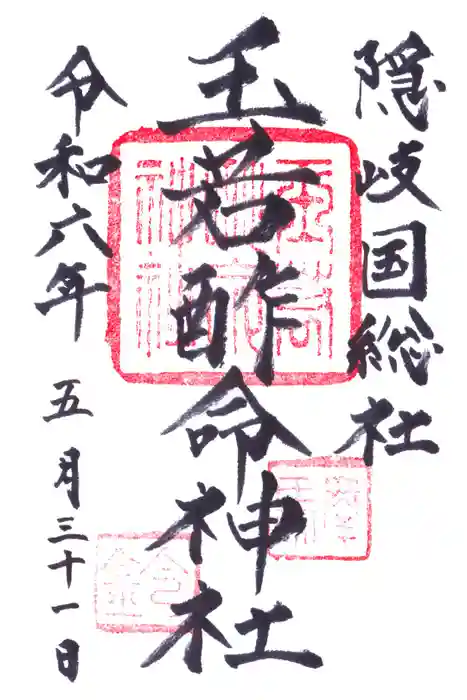 隠岐国総社
玉若酢命神社
令和六年
五月三十一日